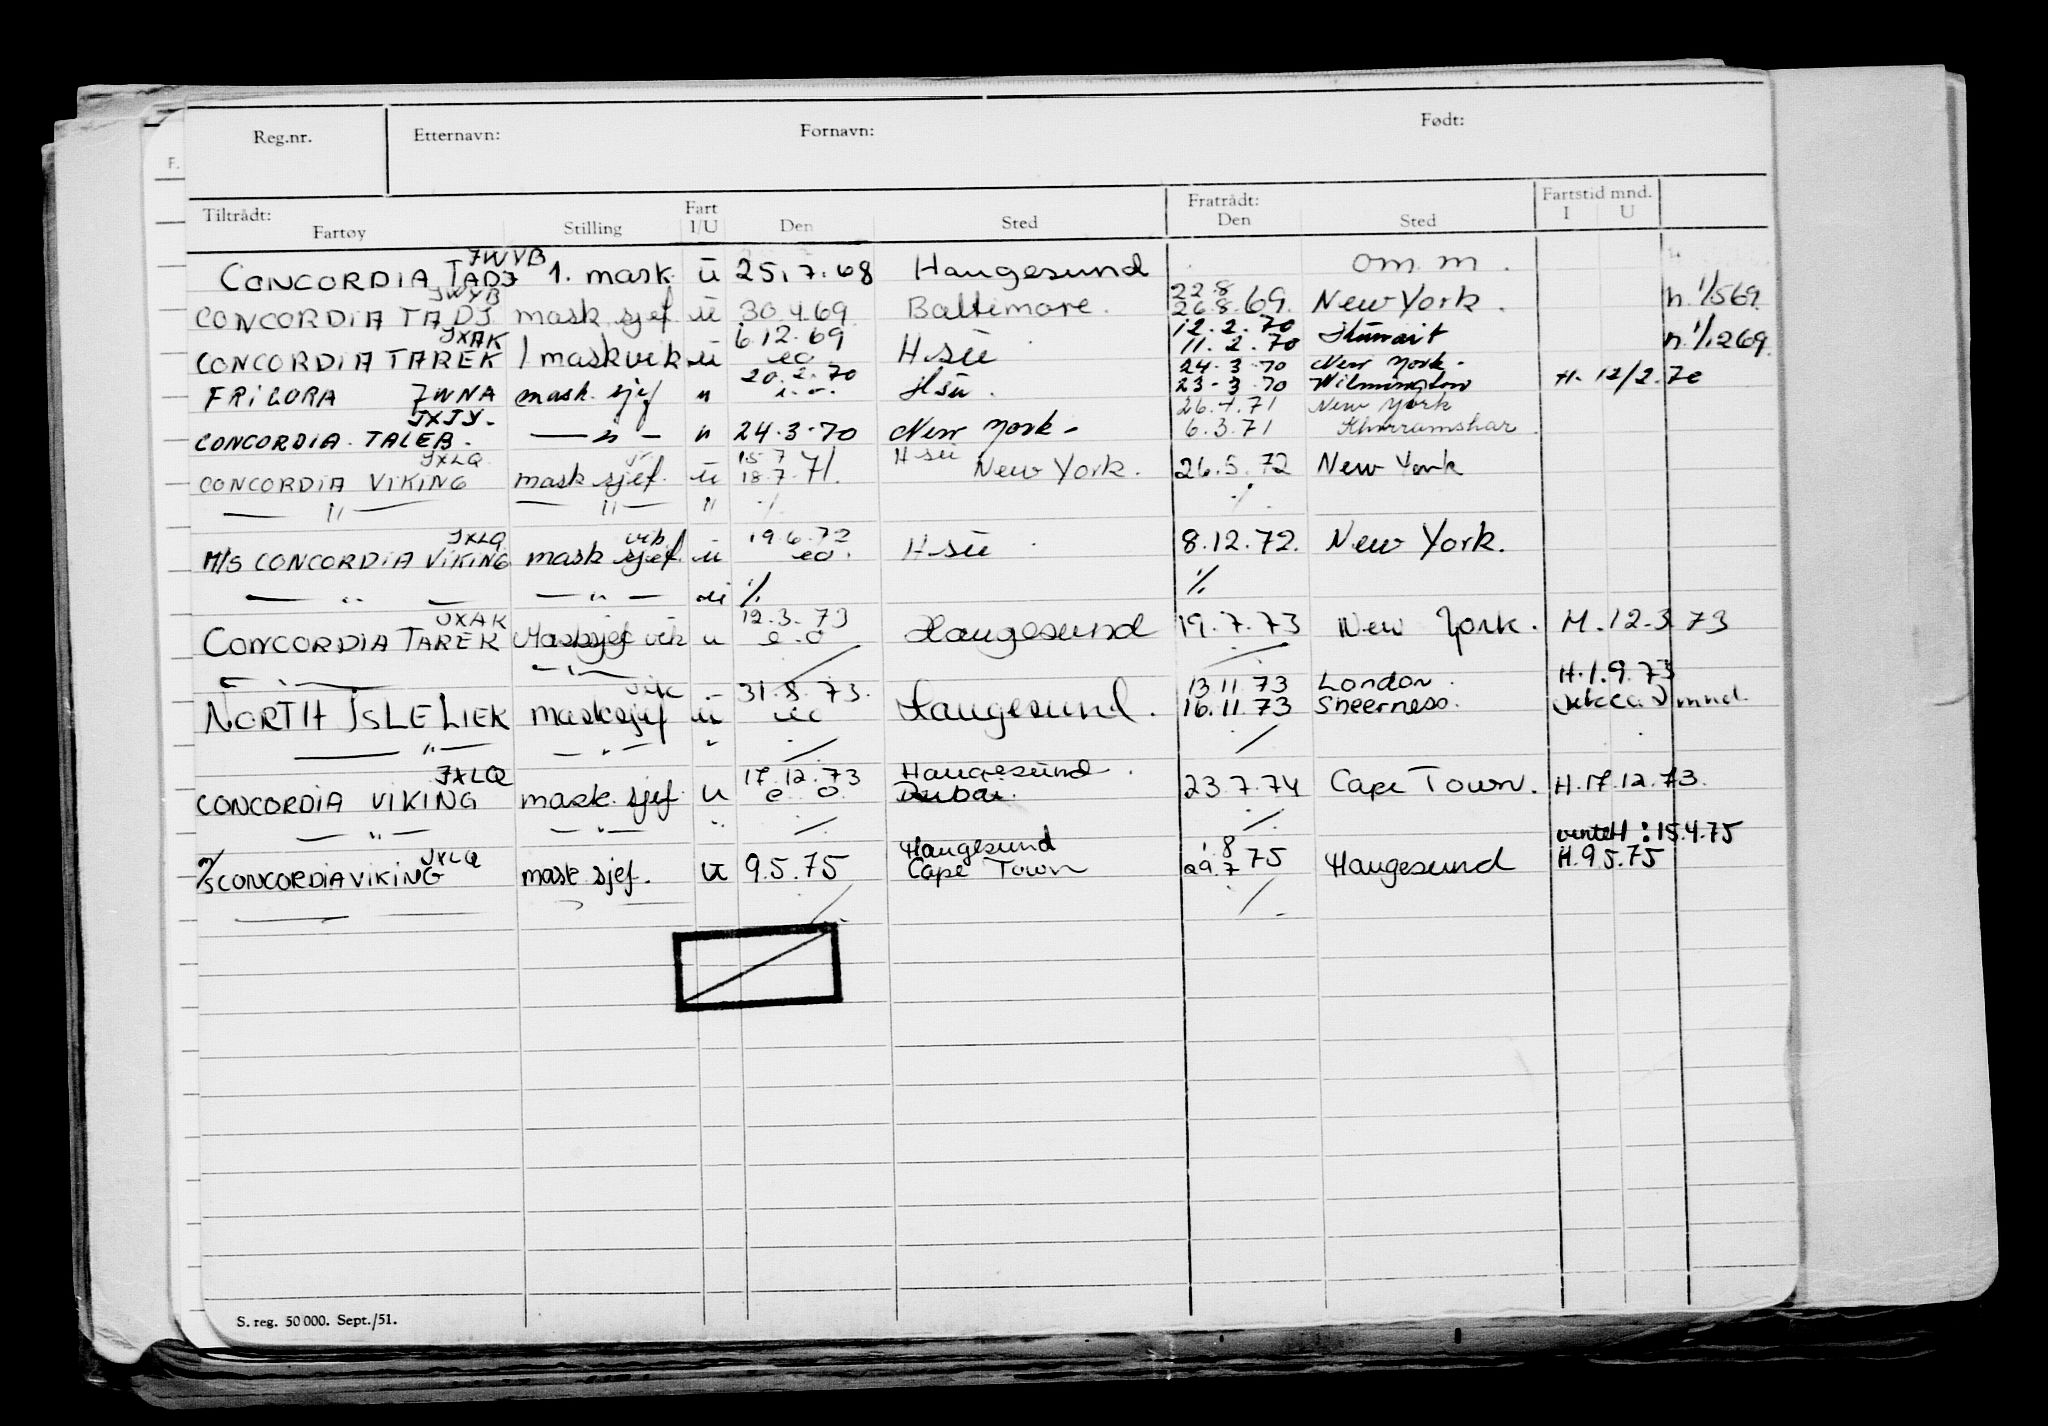 Reg.nr. Etternavn: Fornavn: Født:
F.
Tiltrådt: Fart Fratrådt: Fartstid mnd.
Fartøy Stilling I/U Den Sted Den Sted I U
JWVB
CONCORDIA TADJ 1. mask. ü 25.7.68 Haugesund om. m.
JWYB 22.8
CONCORDIA TADJ mask sjef ü 30.4.69 Baltimore. 26.8.69. New York. h. 1/5 69.
JXAK 6.12.69 12.2.70
CONCORDIA TAREK 1 maskvik ü eo H-sü 11.2.70 h. 1/12 69.
20.2.70 24-3-70 New York-
FRIGORA JWNA mask. sjef u Hsü. 23-3-70 Wilmington H. 12/2.70
JXJY. 26.4.71 New York
CONCORDIA. TALEB. — " — u 24-3-70 New York- 6.3.71 Khorramshar
JXLQ 15.7 Hsü
CONCORDIA VIKING mask sjef. ü 18.7.71. New York. 26.5.72 New York
— " — — " — " ./. ./.
JXLQ vik 19.6.72
M/S CONCORDIA VIKING mask sjef. ü eo. H-sü 8.12.72. New York.
— " — — " — ./. ./.
JXAK 12.3.73
CONCORDIA TAREK Masksjef vik u e.o Haugesund 19.7.73 New York. M.12.3 73
— " — — " —
vik 31.8.73. 13.11.73 London. H.1.9.73
NORTH ISLE LIEK masksjef ü eo Haugesund. 16.11.73 Sheerness. mnd.
— " — — " — " ./. ./.
JXLQ 17.12.73 Haugesund.
CONCORDIA VIKING mask. sjef. u e o. Dubai. 23.7.74 Cape Town. H.17.12.73.
— " — — " — " ./. ./.
ventet : 15.4.75
JXLQ Haugesund 1.8 H.9.5.75
M/S CONCORDIA VIKING mask. sjef. u 9.5.75 Cape Town 29.7 75 Haugesund
S. reg. 50 000. Sept./51.